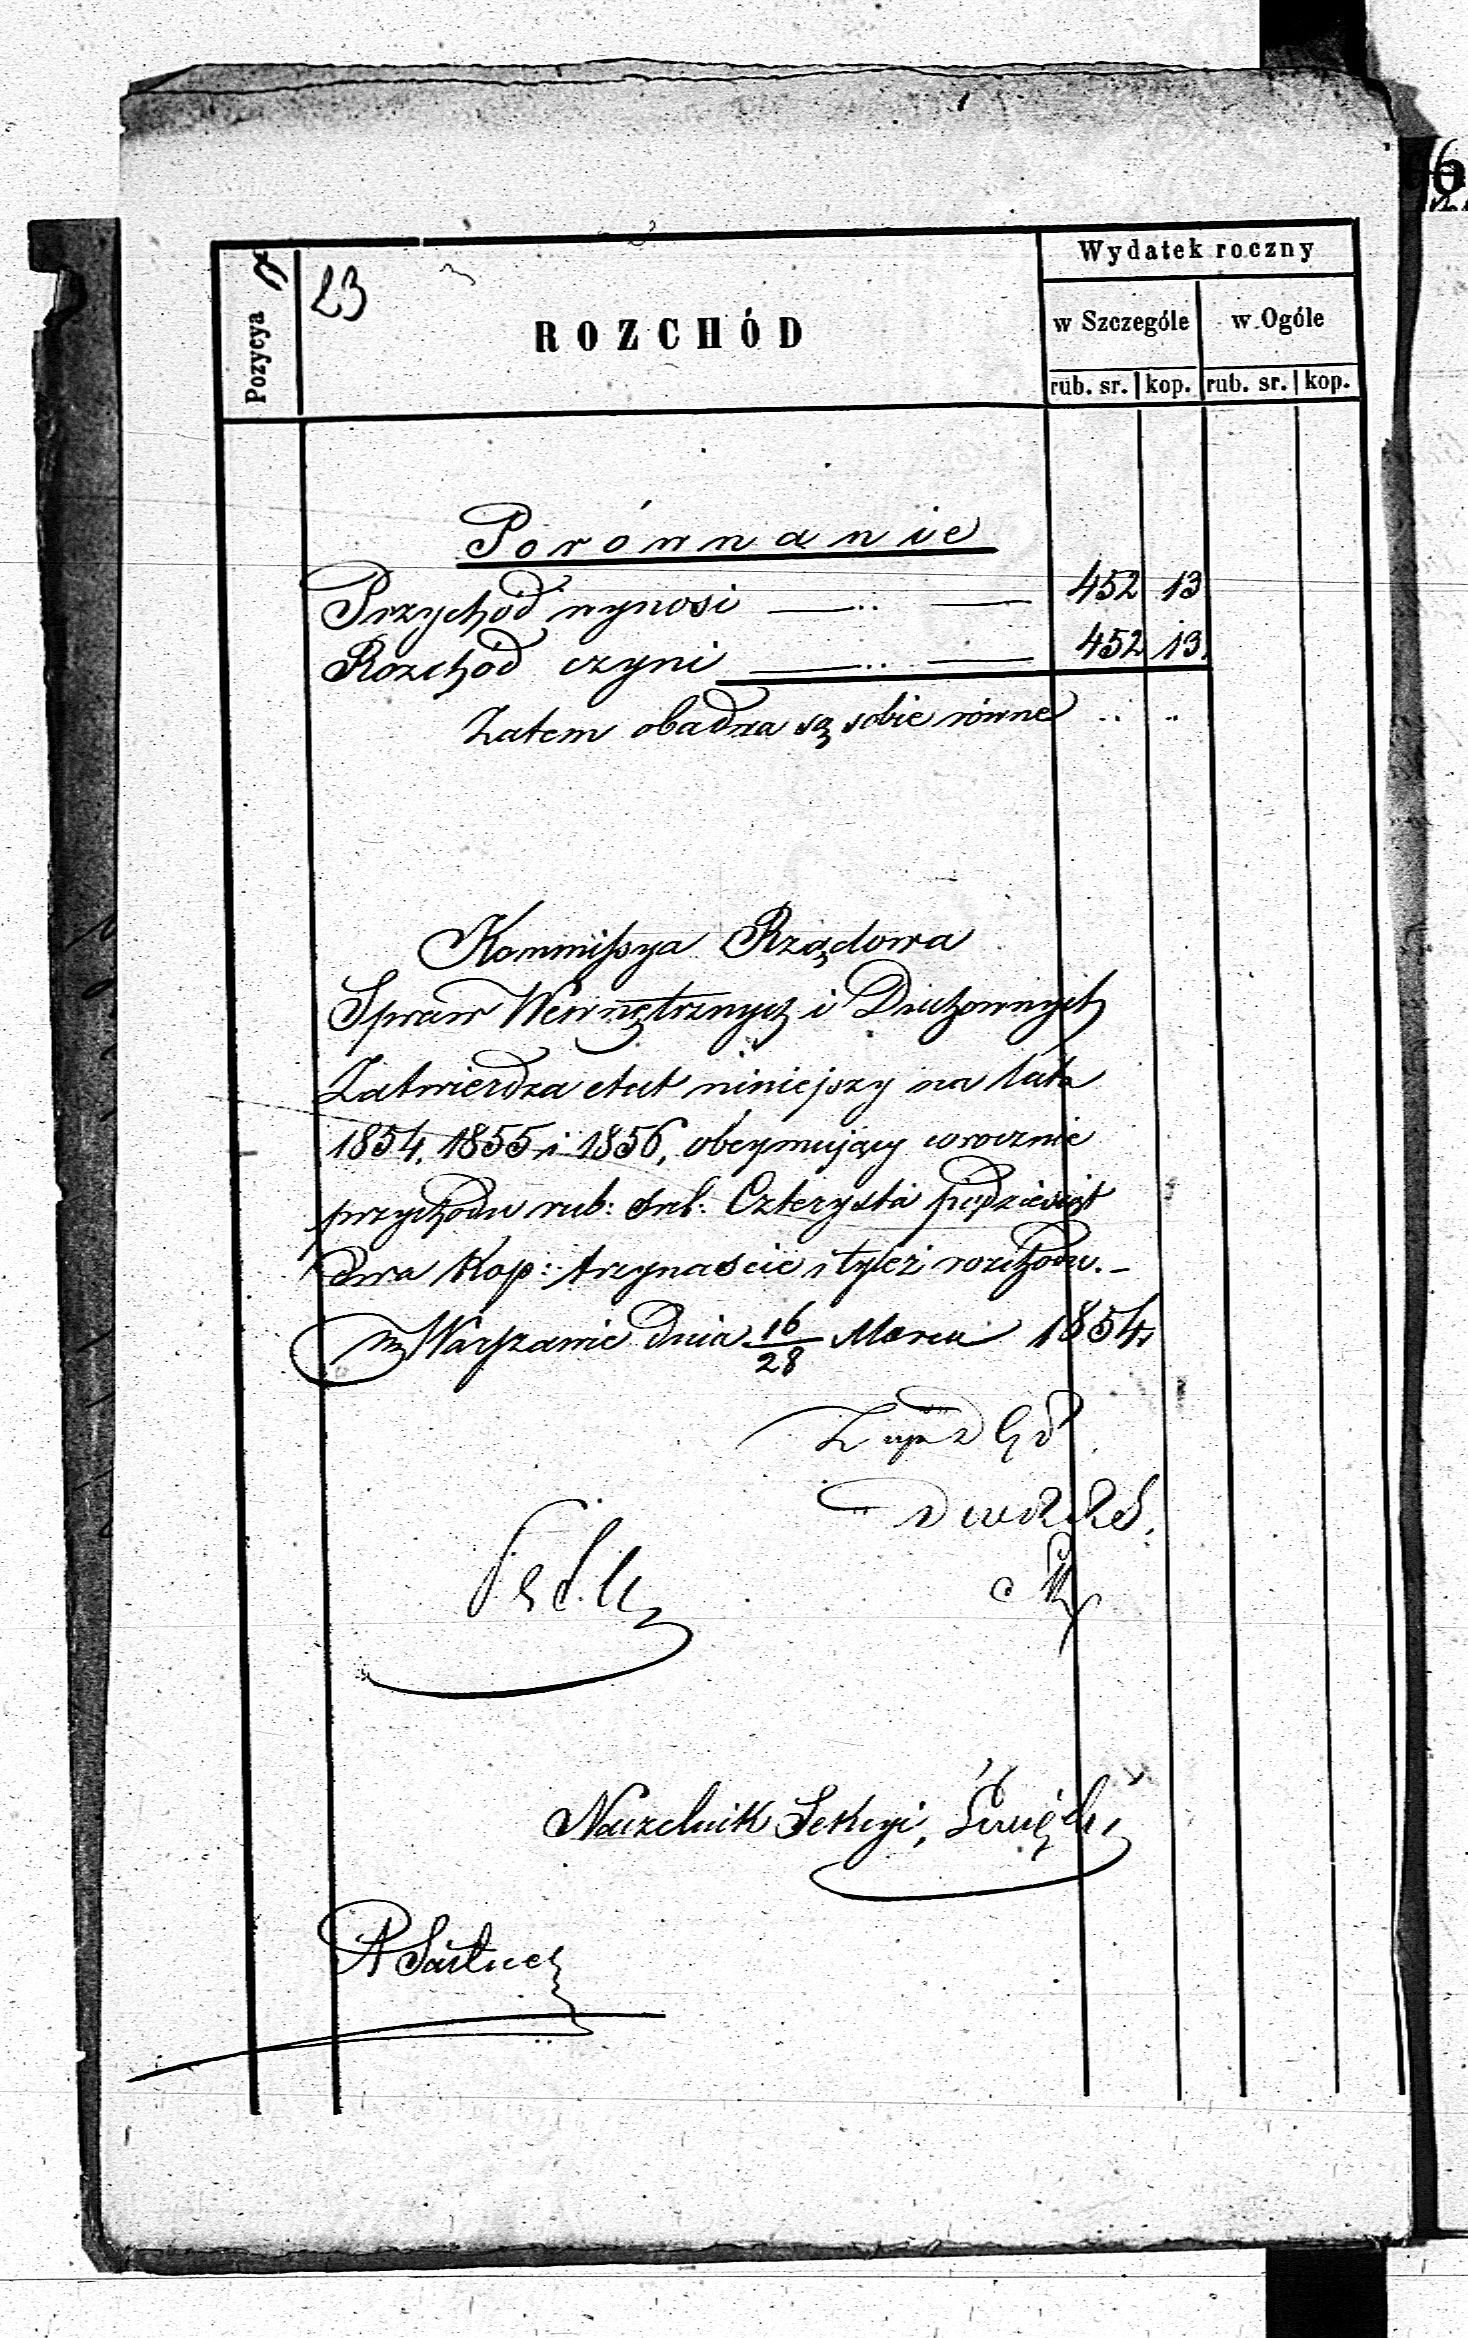 6
Pozycya
23
ROZCHÓD
Wydatek roczny
w Szczególe w Ogóle
rub. sr. kop. rub. sr. kop.
Porównanie
Przychód wynosi 452 13
Rozchód czyni 452 13
Zatem obadwa są sobie równe
Kommissya Rządowa
Spraw Wewnętrznych i Duchownych
Zatwierdza etat niniejszy na lata
1854, 1855 i 1856, obeymujący corocznie
przychodu rub: srb: Czterysta pięćdziesiąt
dwa Kop: trzynaście i tyleż rozchodu.–
w Warszawie dnia 16/28 Marca 1854
Naczelnik Sekcyi,